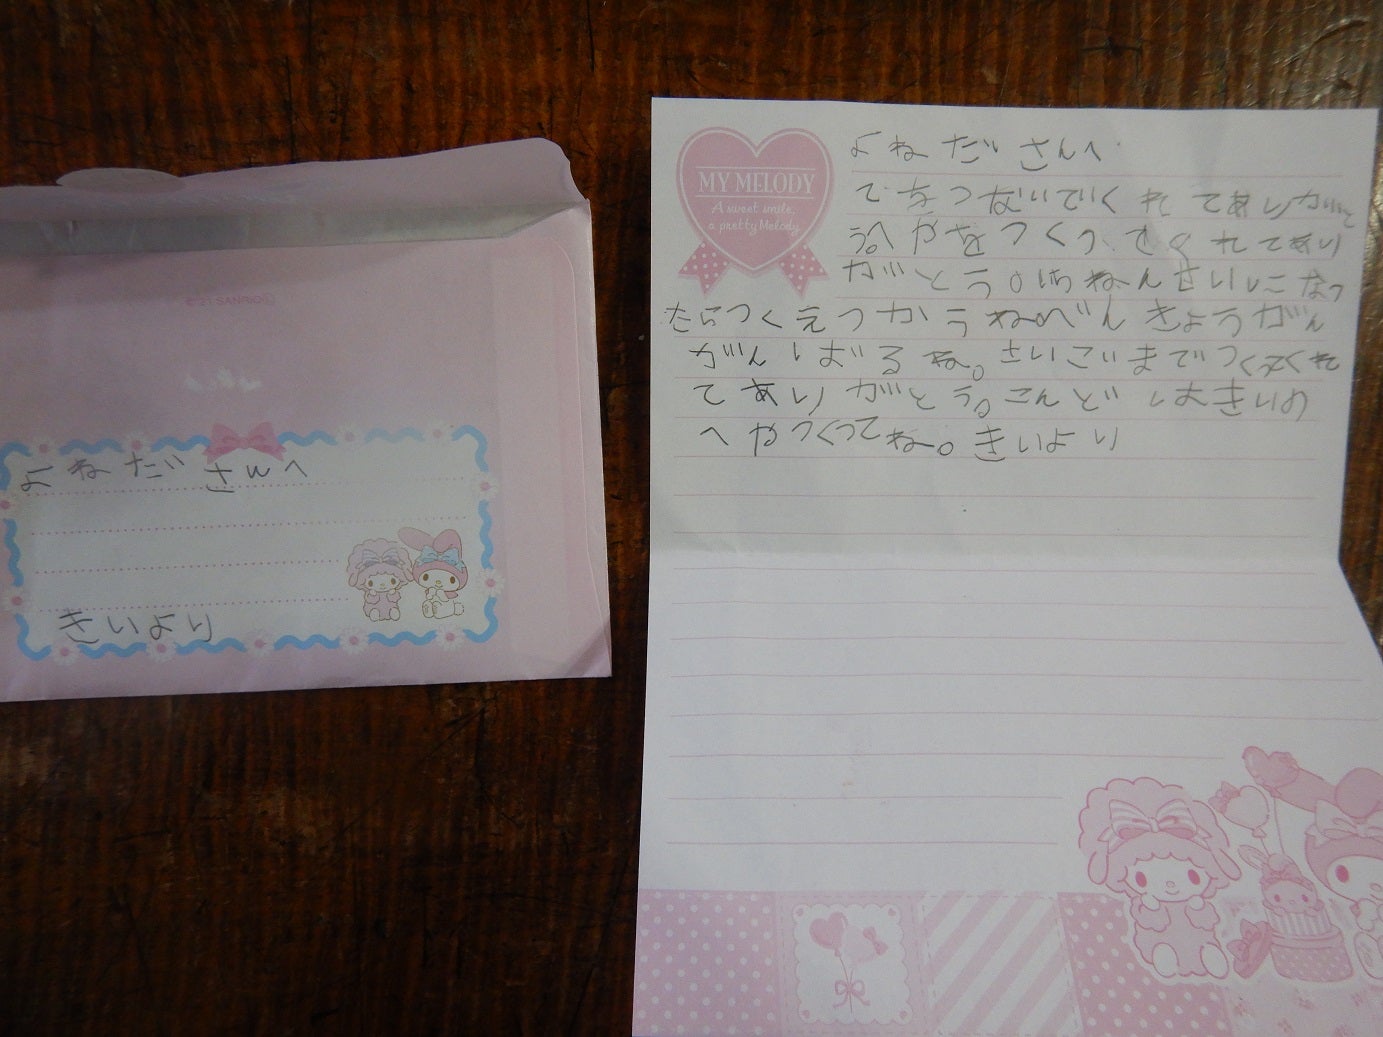 よねださんへ
きいより
MY MELODY
A sweet smile,
a pretty Melody.
よねださんへ
でをつないでくれてありがと
う。へやをつくってくれてあり
がとう。いちねんさいしになっ
たらつくえつかうね。べんきょうがん
がんばるね。さいごまでつくてくれ
てありがとう。こんどはおきいの
へやつくってね。きいより